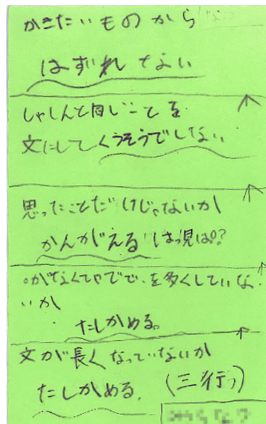 かきたいものから
はずれてない
しゃしんと同じことを
文にしてくうそうでしない
思ったことだけじゃないか
かんがえるは っ見は!?
。がなくて、でを多くしていな
いか
たしかめる。
文が長くなっていないか
たしかめる。(三行)